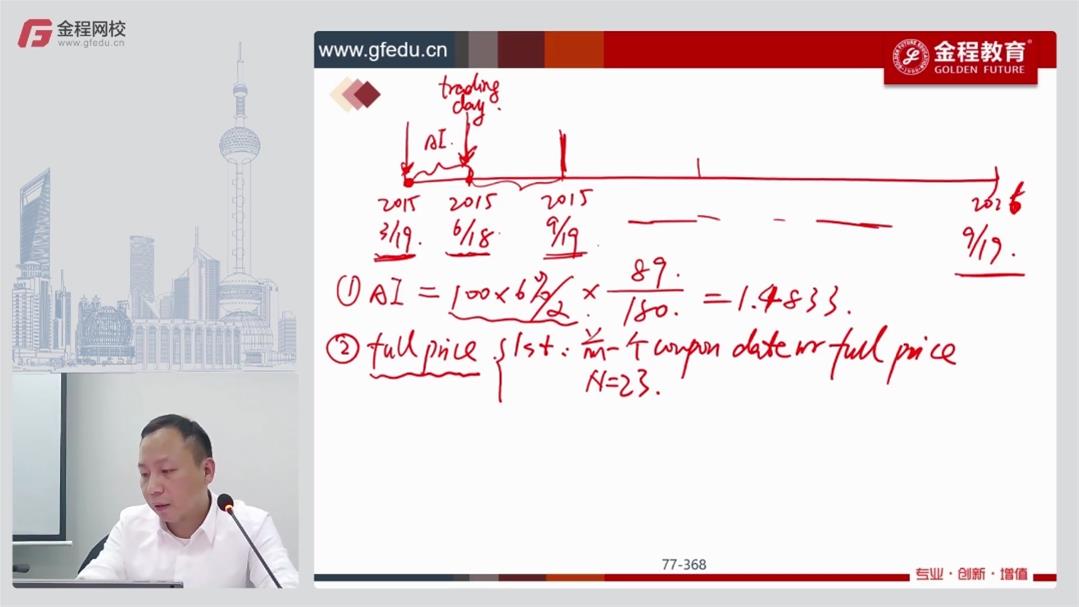 金程网校
www.gfedu.cn
www.gfedu.cn
金程教育
GOLDEN FUTURE
trading
day.
AI.
2015 2015 2015
3/19. 6/18. 9/19. 9/19.
① AI = 100×6%/2 × 89/180. = 1.4833.
② full price { 1st: 前一个 coupon date full price
N=23.
77-368
专业·创新·增值